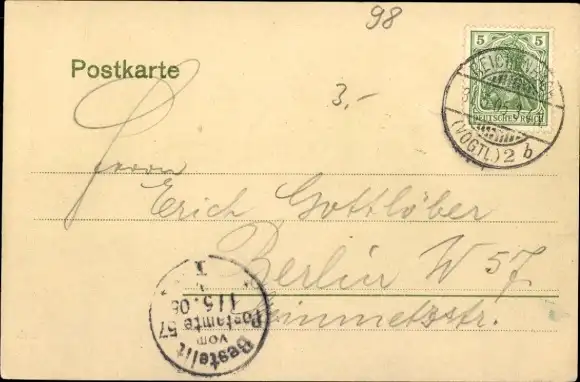 98
5 5
DEUTSCHES REICH
REICHENBACH
(VOGTL.) 2 b
Postkarte
3.-
Herrn
Erich Gottlöber
Berlin W 57
Steinmetzstr.
Bestellt
vom
Postamte 57
1/5.05